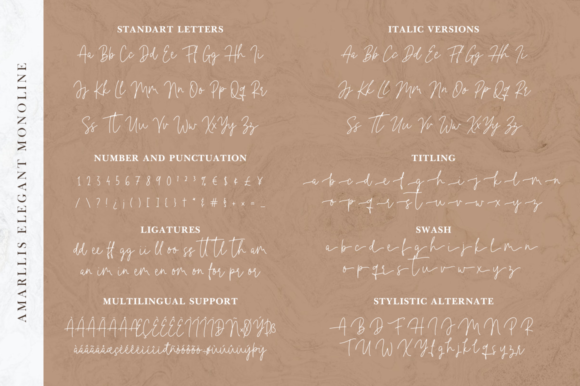 AMARLLIS ELEGANT MONOLINE
STANDART LETTERS
Aa Bb Cc Dd Ee Ff Gg Hh Ii
Jj Kk Ll Mm Nn Oo Pp Qq Rr
Ss Tt Uu Vv Ww Xx Yy Zz
NUMBER AND PUNCTUATION
1 2 3 4 5 6 7 8 9 0
LIGATURES
dd ee ff gg ii ll oo ss tt tl th am
an im in em en om on for pr or
MULTILINGUAL SUPPORT
ITALIC VERSIONS
Aa Bb Cc Dd Ee Ff Gg Hh Ii
Jj Kk Ll Mm Nn Oo Pp Qq Rr
Ss Tt Uu Vv Ww Xx Yy Zz
TITLING
a b c d e f g h i j k l m n
o p q r s t u v w x y z
SWASH
a b c d e f g h i j k l m n
o p q r s t u v w x y z
STYLISTIC ALTERNATE
A B D F H I J M N P R